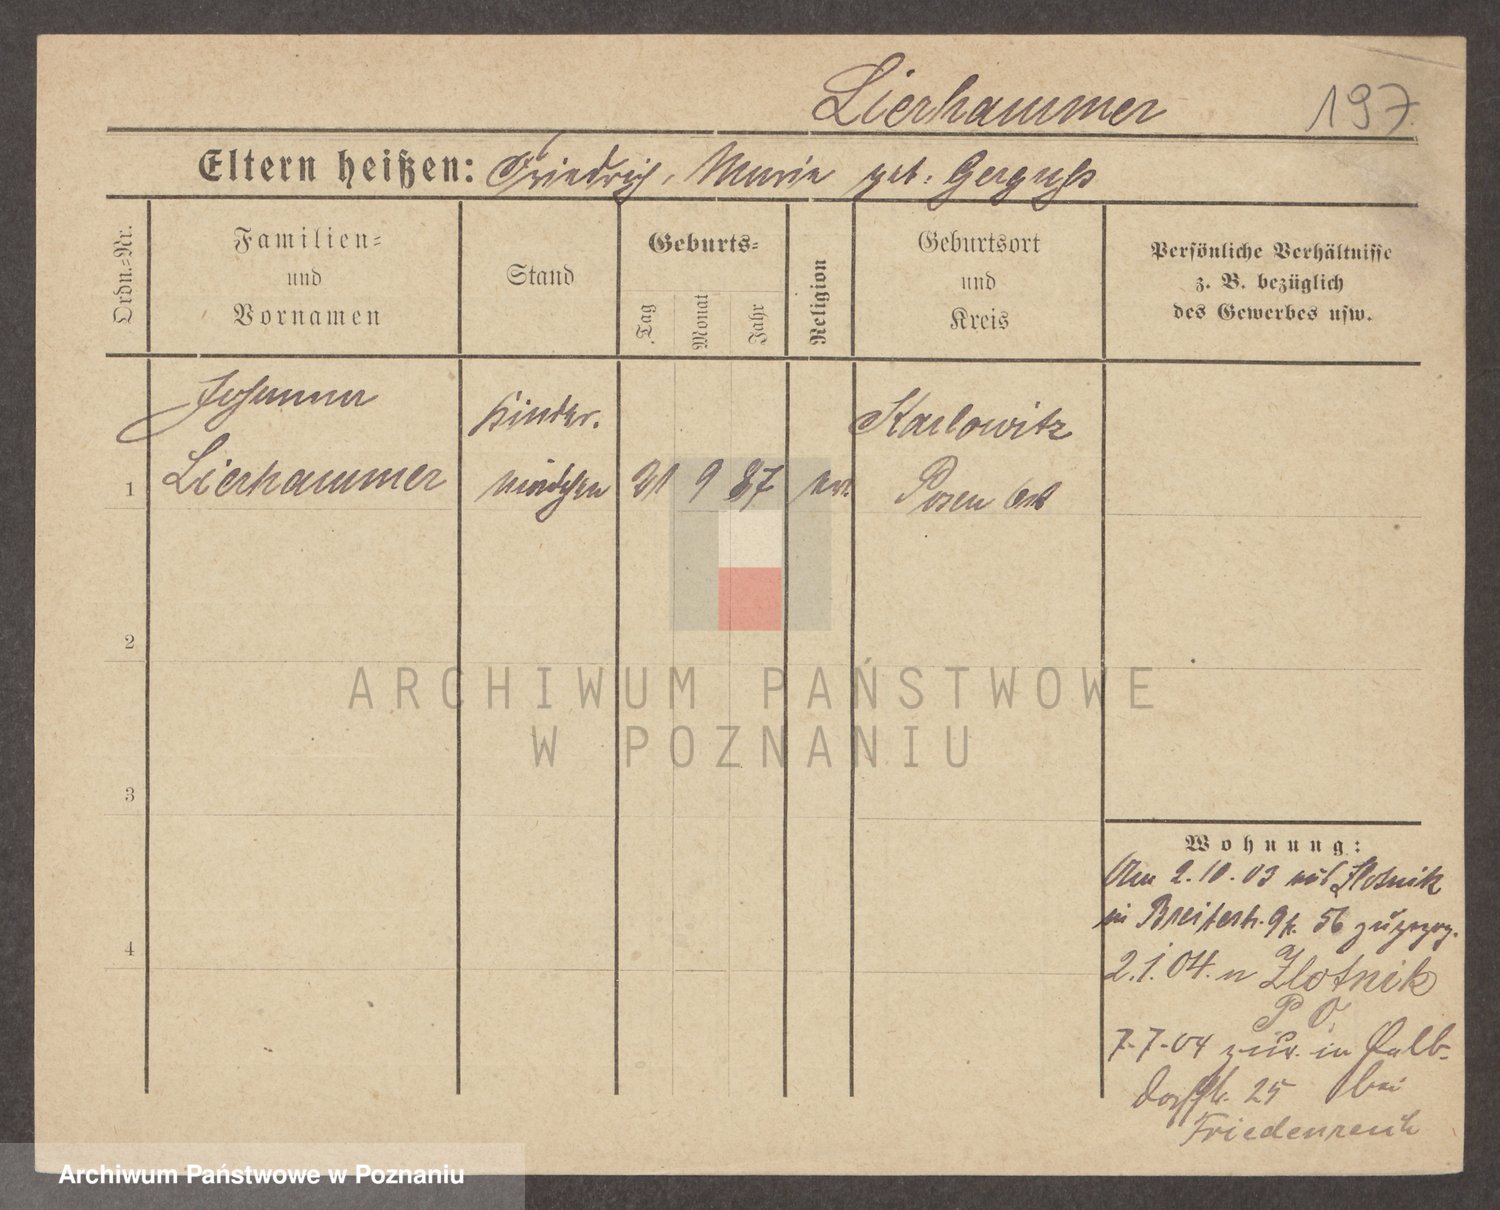 Lierhammer 197
Eltern heißen: Friedrich, Marie geb.
Ordn.=Nr.
Familien=
und
Vornamen
Stand
Geburts=
Tag
Monat
Jahr
Religion
Geburtsort
und
Kreis
Persönliche Verhältnisse
z. B. bezüglich
des Gewerbes usw.
Johanna Kinder. Karlowitz
1 Lierhammer mädchen 21 9 87 ev. Posen Ost
2
3
4
Wohnung:
Am 2.10.03 aus Zlotnik
in Breitestr. 56 zugezog.
2.1.04. n Zlotnik
P O.
7.7.04 zur. in Halb-
dorfstr. 25 bei
Friedenreich
ARCHIWUM PAŃSTWOWE
W POZNANIU
Archiwum Państwowe w Poznaniu